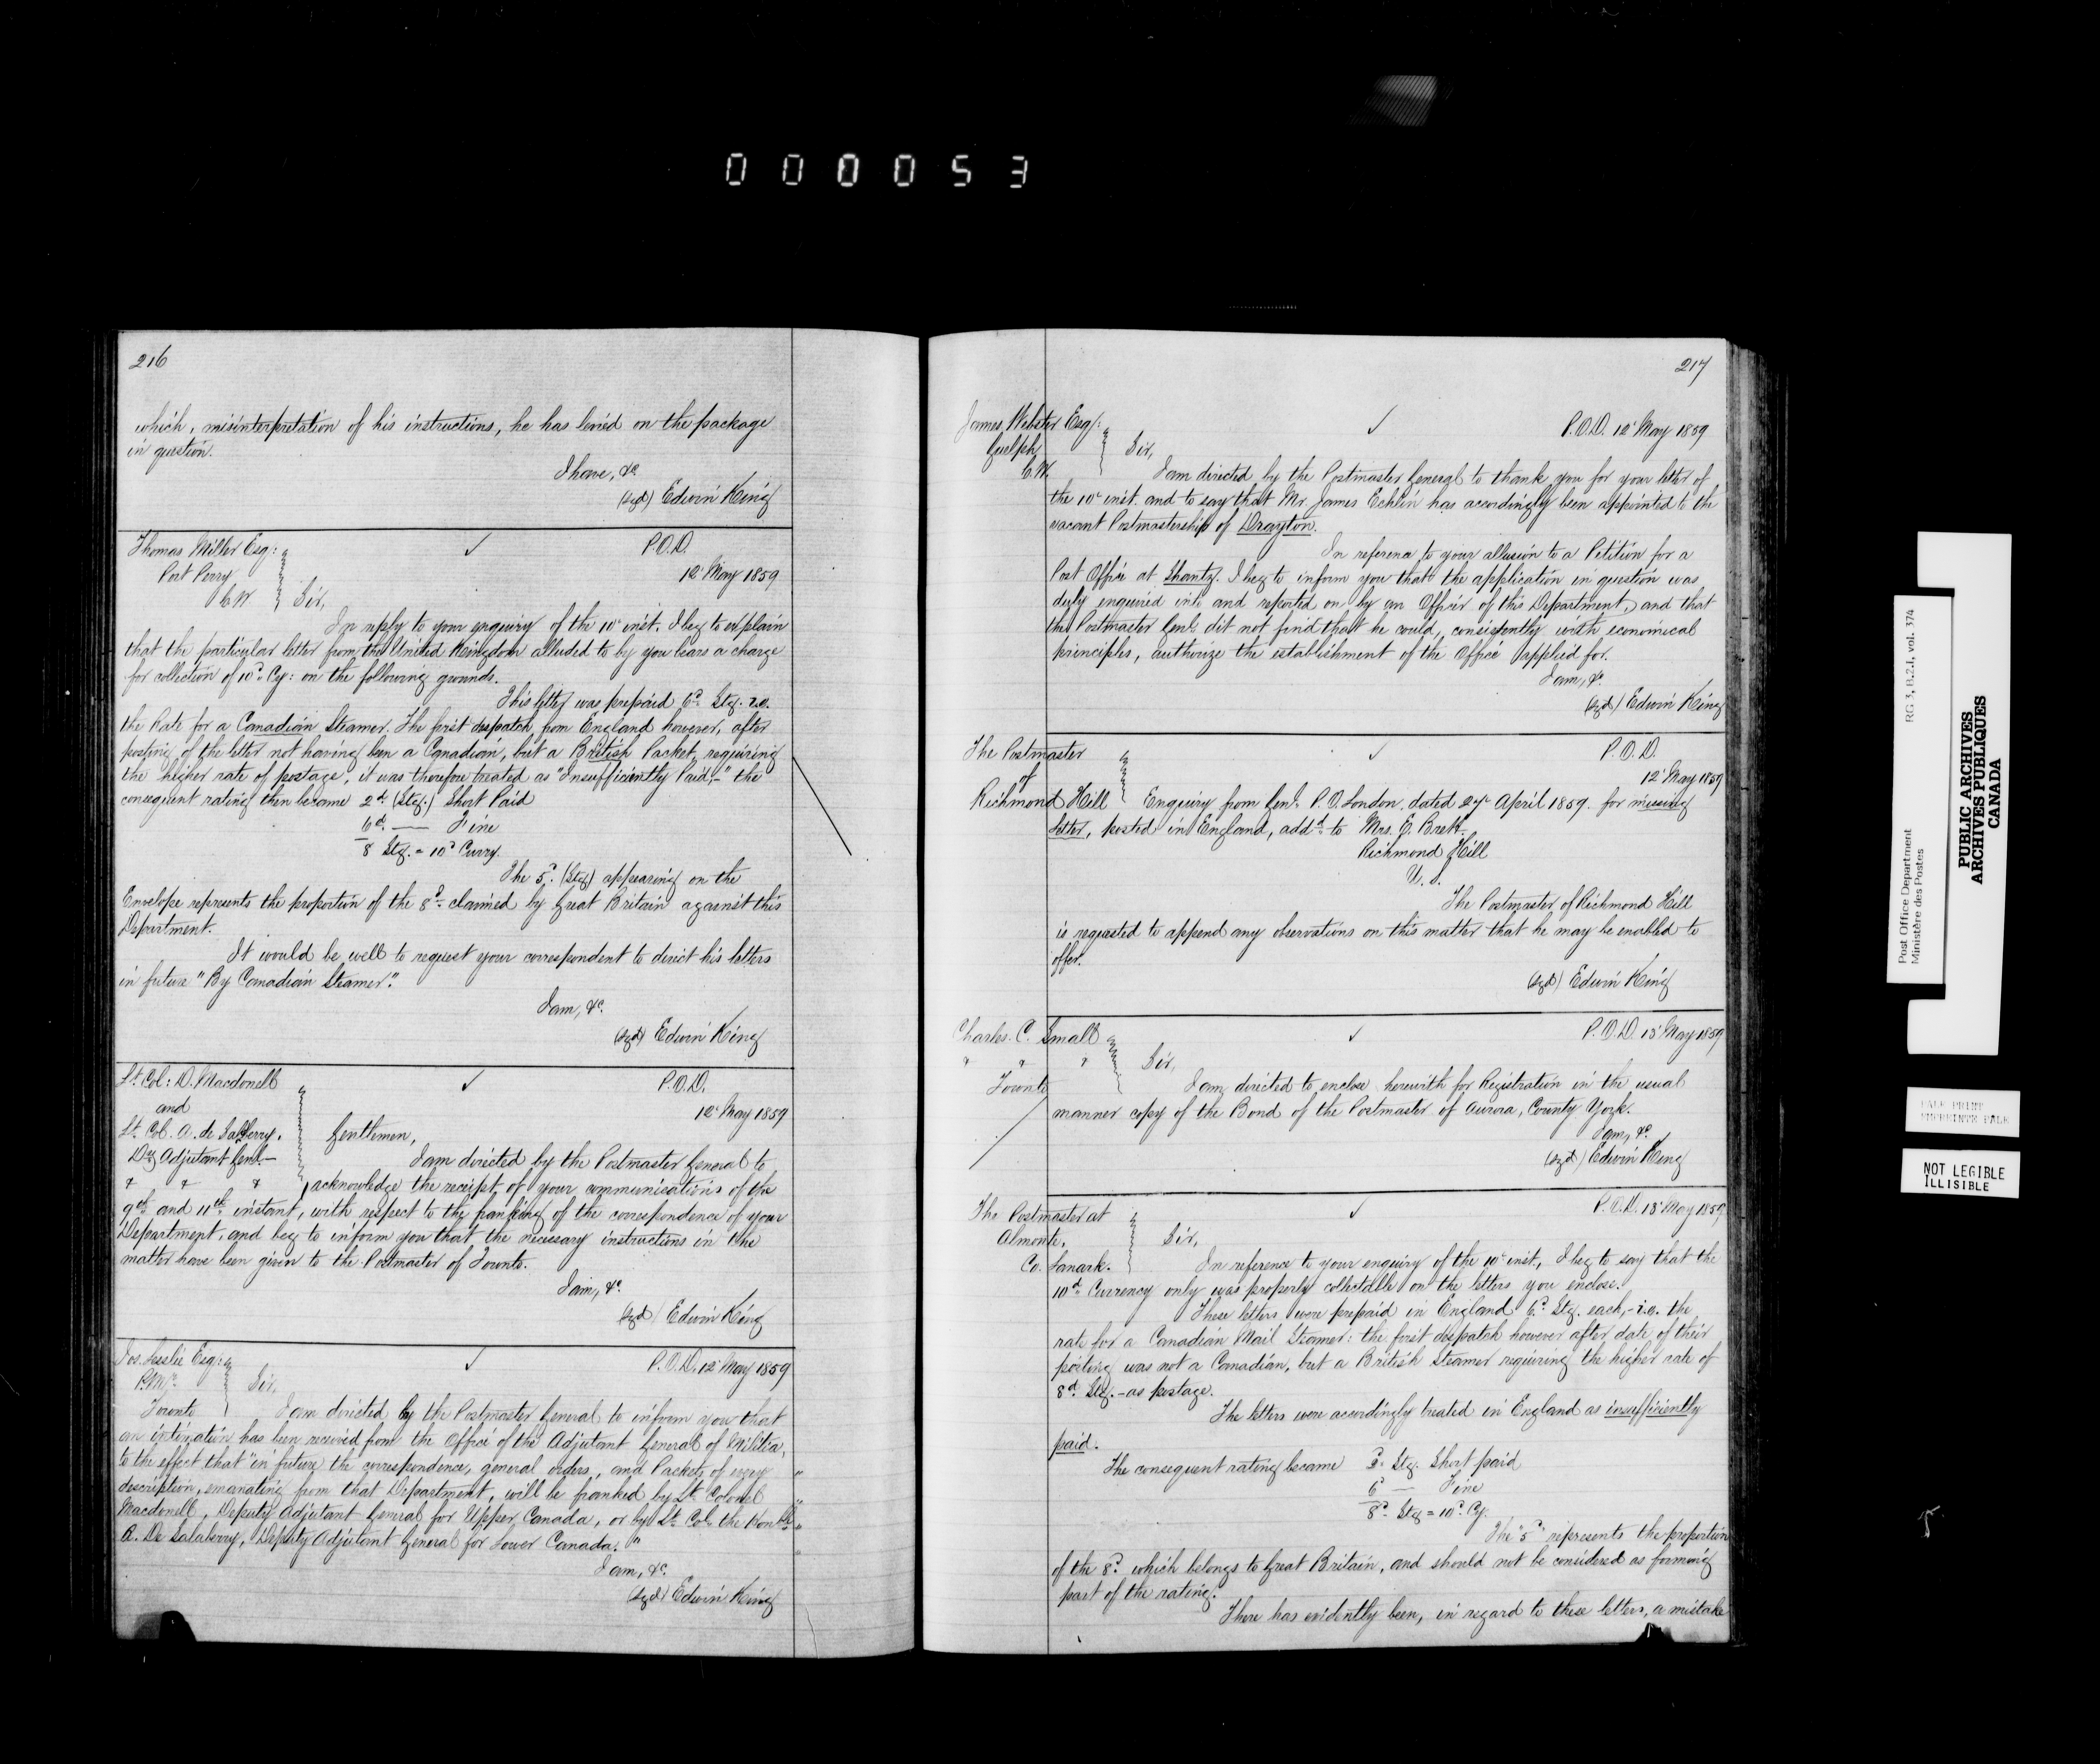 000053
216
which, misinterpretation of his instructions, he has levied on the package
in question.
I have, &c
(sgd) Edwin King
Thomas Miller Esq:
Port Perry
C.W
✓
P.O.D.
12 May 1859
Sir,
In reply to your enquiry of the 10th inst. I beg to explain
that the particular letter from the United Kingdom alluded to by you bears a charge
for collection of 10d Cy: on the following grounds.
This letter was prepaid 6d Stg. i.e.
the Rate for a Canadian Steamer. The first despatch from England however, after
posting of the letter not having been a Canadian, but a British Packet, requiring
the higher rate of postage, it was therefore treated as "Insufficiently Paid,-" the
consequent rating then became 2d (Stg.) Short Paid
6d. — Fine
8 Stg. = 10d Curry.
The 5d. (Stg) appearing on the
Envelope represents the proportion of the 8d claimed by Great Britain against this
Department.
It would be well to request your correspondent to direct his letters
in future "By Canadian Steamer."
I am, &c.
(sgd) Edwin King
Lt. Col: D. Macdonell
and
Lt. Col. A. de Salaberry.
Dy. Adjutant Genl.—
" " "
✓
P.O.D.
12 May 1859
Gentlemen,
I am directed by the Postmaster General to
acknowledge the receipt of your communications of the
9th and 11th instant, with respect to the franking of the correspondence of your
Department, and beg to inform you that the necessary instructions in the
matter have been given to the Postmaster of Toronto.
I am, &c
(sgd) Edwin King
Jos. Leslie Esq:
P.Mr.
Toronto
✓
P.O.D. 12 May 1859
Sir,
I am directed by the Postmaster General to inform you that
an intimation has been received from the Office of the Adjutant General of Militia,
to the effect that "in future the correspondence, general orders, and Packets of every "
description, emanating from that Department, will be franked by Lt. Colonel "
Macdonell, Deputy Adjutant General for Upper Canada, or by Lt. Col. the Honble "
A. De Salaberry, Deputy Adjutant General for Lower Canada. "
I am, &c.
(sgd) Edwin King
217
James Webster Esq:
Guelph
C.W.
✓
P.O.D. 12 May 1859
Sir,
I am directed by the Postmaster General to thank you for your letter of
the 10th inst. and to say that Mr. James Echlin has accordingly been appointed to the
vacant Postmastership of Drayton.
In reference to your allusion to a Petition for a
Post Office at Shantz. I beg to inform you that the application in question was
duly enquired into and reported on by an Officer of this Department, and that
the Postmaster Genl. did not find that he could, consistently with economical
principles, authorize the establishment of the Office applied for.
I am, &c.
(sgd) Edwin King
The Postmaster
of
Richmond Hill
✓
P.O.D.
12 May 1859
Enquiry from Genl. P.O. London, dated 27 April 1859. for missing
letter, posted in England, addd. to Mrs. E. Brett
Richmond Hill
U.S.
The Postmaster of Richmond Hill
is requested to append any observations on this matter that he may be enabled to
offer.
(sgd) Edwin King
Charles. C. Small
" " "
Toronto
✓
P.O.D. 13 May 1859
Sir,
I am directed to enclose herewith for Registration in the usual
manner copy of the Bond of the Postmaster of Aurora, County York.
I am, &c.
(sgd) Edwin King
The Postmaster at
Almonte,
Co. Lanark.
✓
P.O.D. 13 May 1859
Sir,
In reference to your enquiry of the 10th inst., I beg to say that the
10d Currency only was properly collectable on the letters you enclose.
These letters were prepaid in England 6d. Stg. each,- i.e. the
rate for a Canadian Mail Steamer: the first despatch however after date of their
posting was not a Canadian, but a British Steamer requiring the higher rate of
8d. Stg.- as postage.
The letters were accordingly treated in England as insufficiently
paid.
The consequent rating became 2. Stg. Short paid
6d — Fine
8d. Stg = 10d. Cy.
The "5d" represents the proportion
of the 8d. which belongs to Great Britain, and should not be considered as forming
part of the rating.
There has evidently been, in regard to these letters, a mistake
Post Office Department RG 3, B.2.I, vol. 374
Ministère des Postes
PUBLIC ARCHIVES
ARCHIVES PUBLIQUES
CANADA
PALE PRINT
NOT LEGIBLE
ILLISIBLE